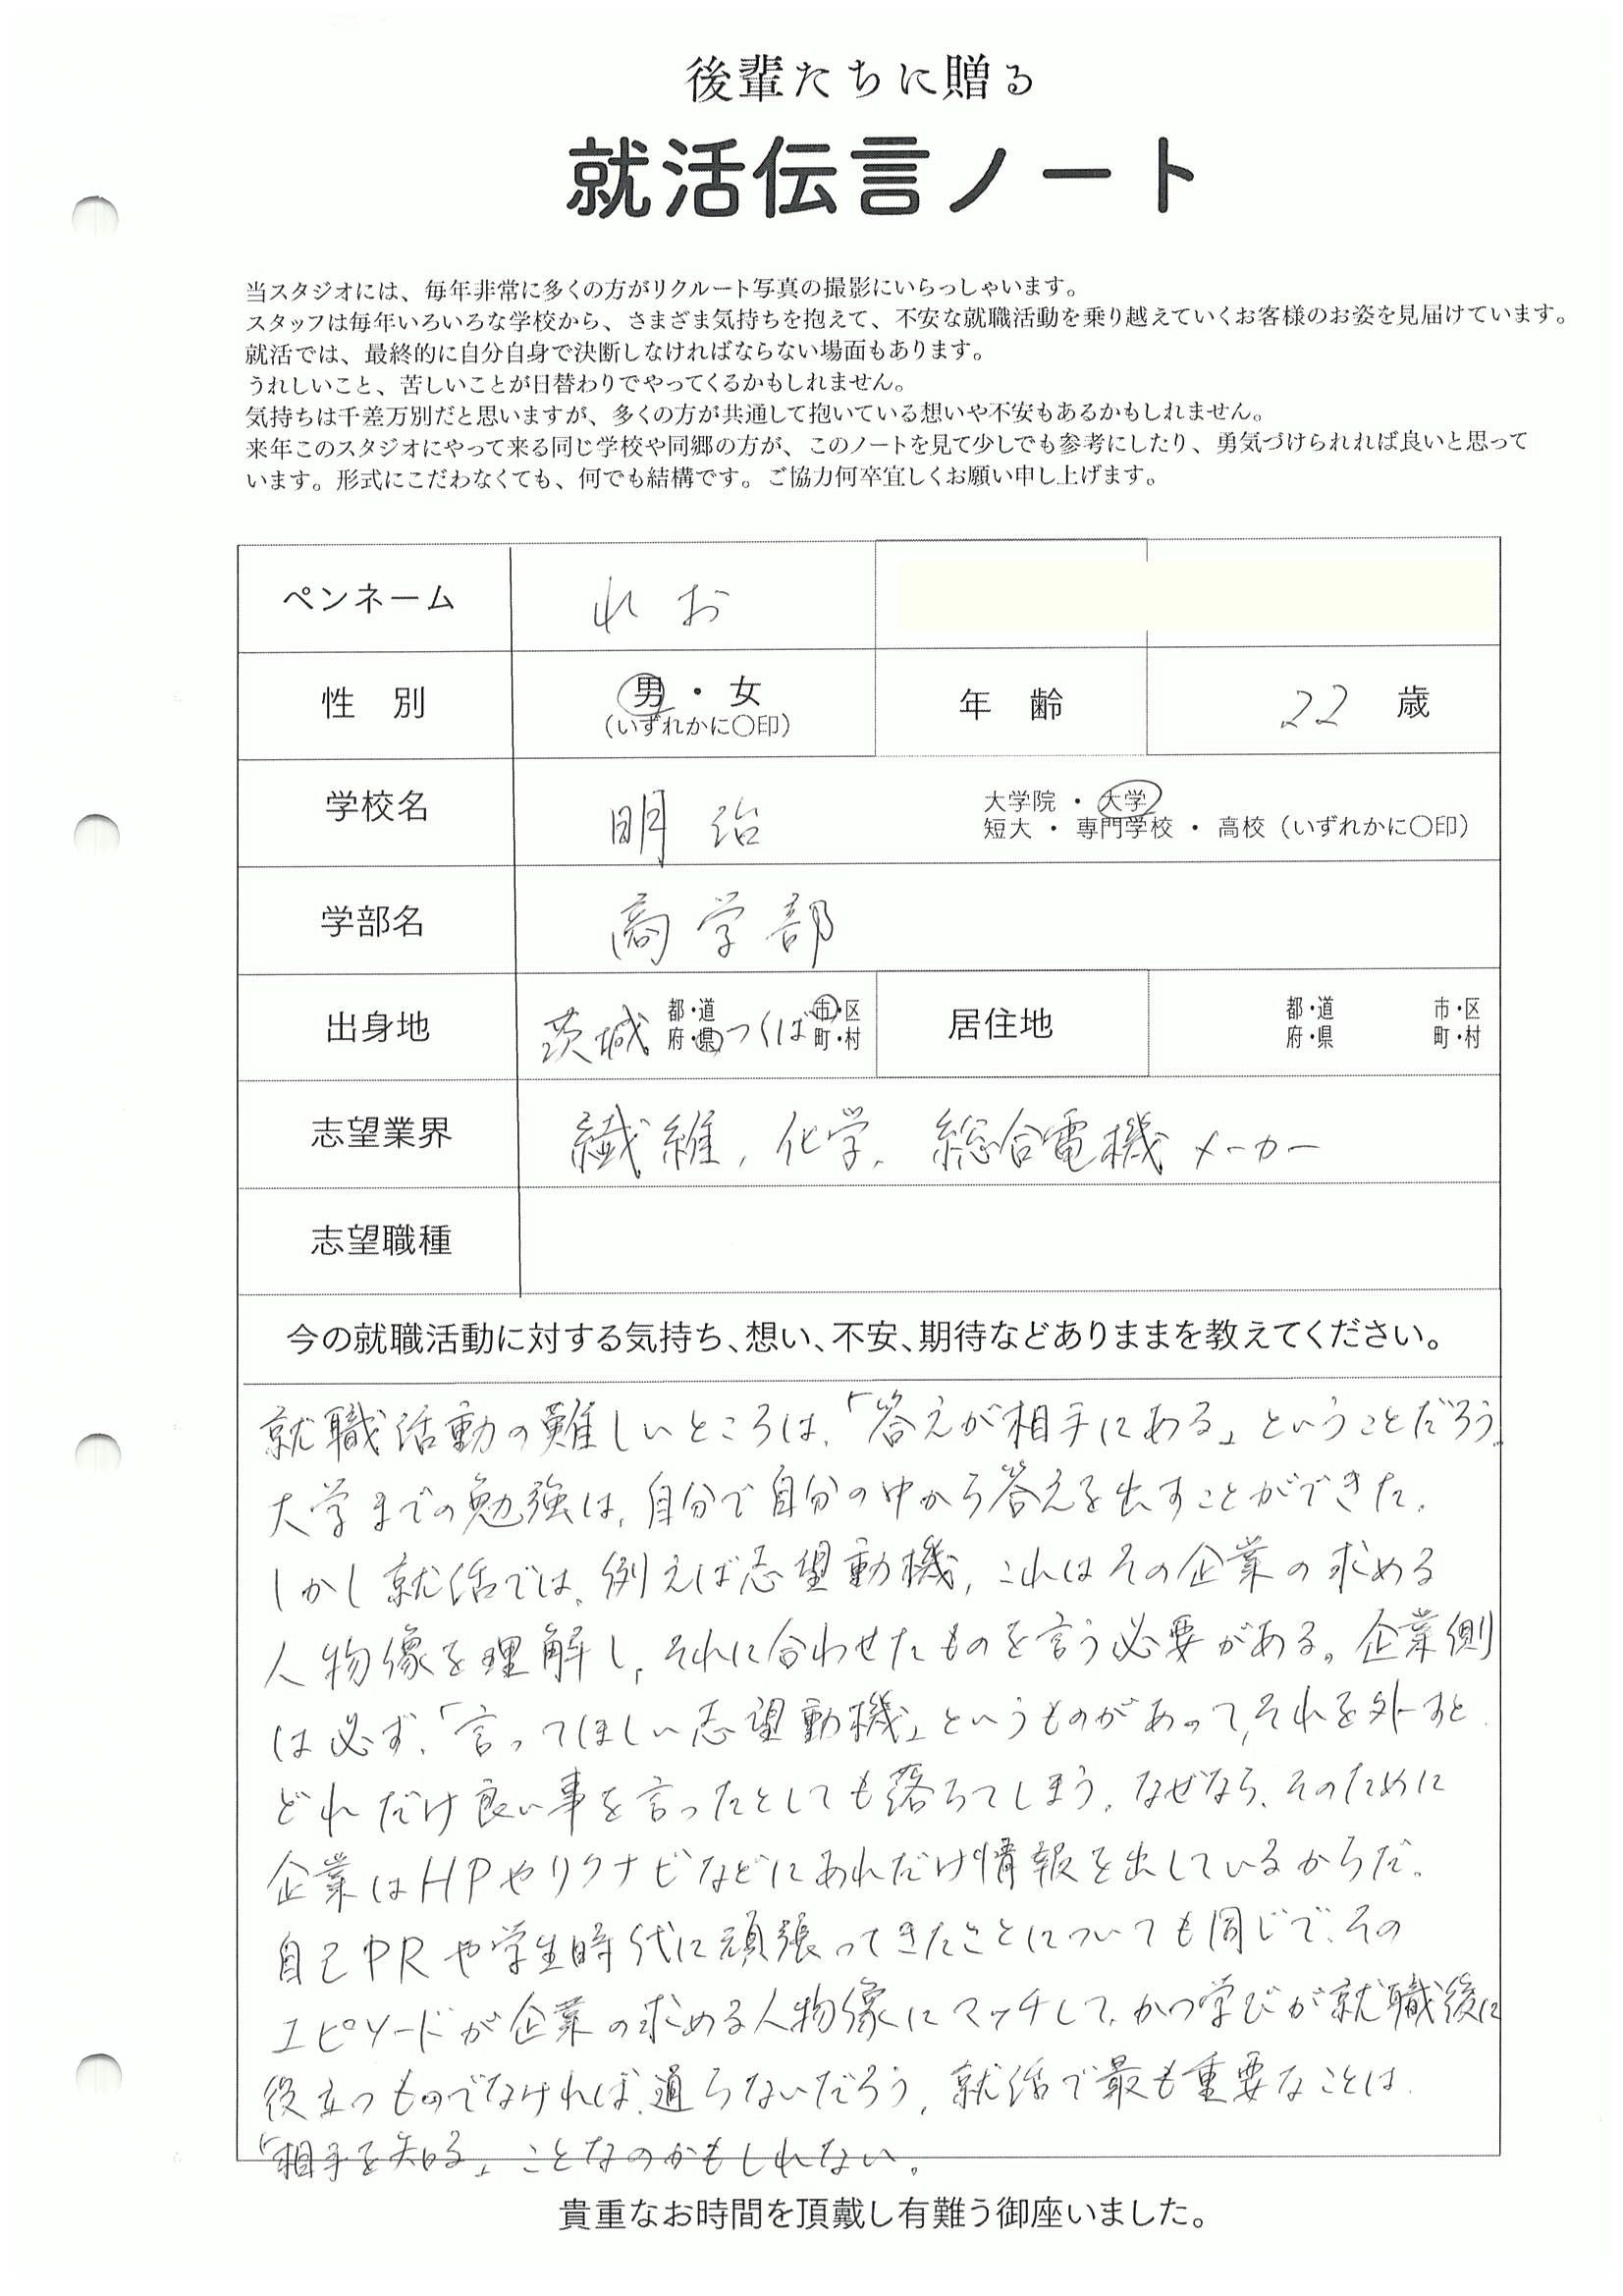 後輩たちに贈る
就活伝言ノート
当スタジオには、毎年非常に多くの方がリクルート写真の撮影にいらっしゃいます。
スタッフは毎年いろいろな学校から、さまざま気持ちを抱えて、不安な就職活動を乗り越えていくお客様のお姿を見届けています。
就活では、最終的に自分自身で決断しなければならない場面もあります。
うれしいこと、苦しいことが日替わりでやってくるかもしれません。
気持ちは千差万別だと思いますが、多くの方が共通して抱いている想いや不安もあるかもしれません。
来年このスタジオにやって来る同じ学校や同郷の方が、このノートを見て少しでも参考にしたり、勇気づけられれば良いと思って
います。形式にこだわなくても、何でも結構です。ご協力何卒宜しくお願い申し上げます。
ペンネーム れお
性 別 男・女 年 齢 22 歳
(いずれかに○印)
学校名 明治 大学院・大学
短大・専門学校・高校(いずれかに○印)
学部名 商学部
出身地 茨城 都・道 府・県 つくば 市・区 町・村 居住地 都・道 府・県 市・区 町・村
志望業界 繊維, 化学, 総合電機メーカー
志望職種
今の就職活動に対する気持ち、想い、不安、期待などありままを教えてください。
就職活動の難しいところは、「答えが相手にある」ということだろう。
大学までの勉強は、自分で自分の中から答えを出すことができた。
しかし就活では、例えば志望動機、これはその企業の求める
人物像を理解し、それに合わせたものを言う必要がある。企業側
は必ず、「言ってほしい志望動機」というものがあって、それを外すと、
どれだけ良い事を言ったとしても落ちてしまう。なぜなら、そのために
企業はHPやリクナビなどにあれだけ情報を出しているからだ。
自己PRや学生時代に頑張ってきたことについても同じで、その
エピソードが企業の求める人物像にマッチして、かつ学びが就職後に
役立つものでなければ、通らないだろう。就活で最も重要なことは、
「相手を知る」ことなのかもしれない。
貴重なお時間を頂戴し有難う御座いました。